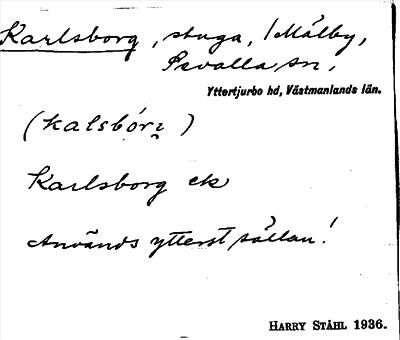 Karlsborg, stuga, /Målby,
Isvalla, sn,
Yttertjurbo hd, Västmanlands län.
(kalsbórʐ)
Karlsborg ek
Används ytterst sällan!
HARRY STÅHL 1936.